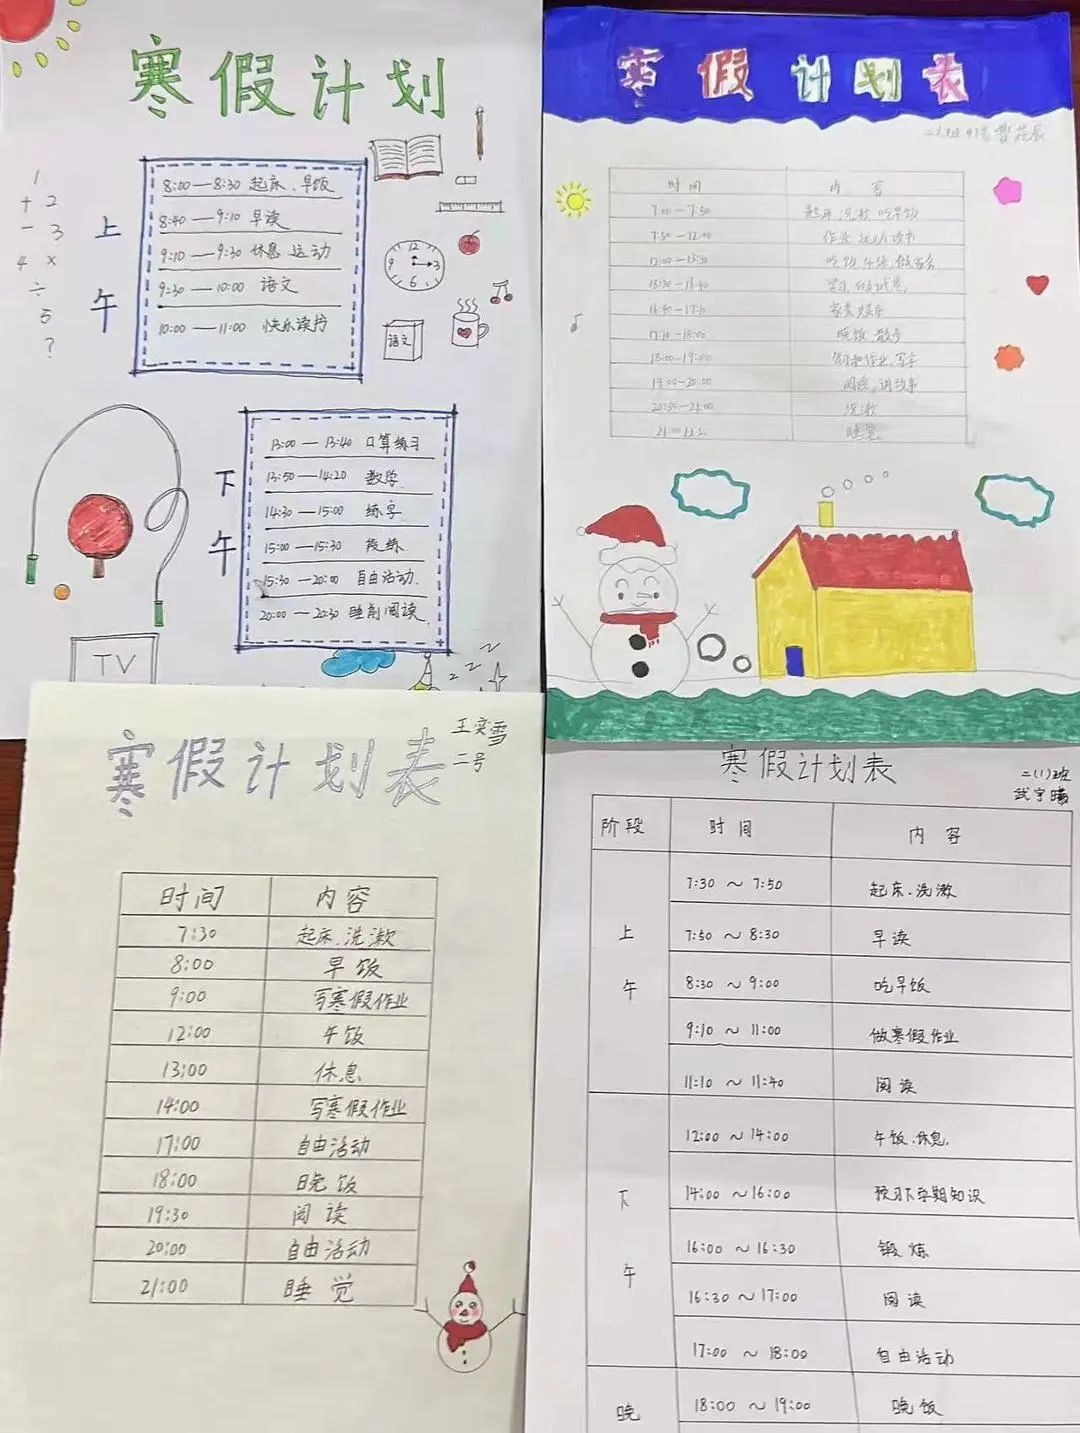 寒假计划
1
+ 2
- 3
4 ×
÷
5
?
上午
8:00—8:30 起床、早饭
8:40—9:10 早读
9:10—9:30 休息 运动
9:30—10:00 语文
10:00—11:00 快乐读书
12
9 3
6
语文
下午
13:00—13:40 口算练习
13:50—14:20 数学
14:30—15:00 练字
15:00—15:30
15:30—20:00 自由活动
20:00—20:30 睡前阅读
TV
z z z
寒假计划表
时间 内容
7:00—7:50 起床、洗漱 吃早饭
7:50—12:00 作业
吃饭、午休
家务 娱乐
17:10—18:00 晚饭、散步
18:00—19:00
19:00—20:00 阅读、讲故事
20:30—21:00 洗漱
睡觉
寒假计划表
王奕雪
二号
时间 内容
7:30 起床、洗漱
8:00 早饭
9:00 写寒假作业
12:00 午饭
13:00 休息
14:00 写寒假作业
17:00 自由活动
18:00 晚饭
19:30 阅读
20:00 自由活动
21:00 睡觉
寒假计划表
二(1)班
武宇曦
阶段 时间 内容
上午
7:30～7:50 起床、洗漱
7:50～8:30 早读
8:30～9:00 吃早饭
9:10～11:00 做寒假作业
11:10～11:40 阅读
下午
12:00～14:00 午饭、休息
14:00～16:00 预习下学期知识
16:00～16:30 锻炼
16:30～17:00 阅读
17:00～18:00 自由活动
晚
18:00～19:00 晚饭